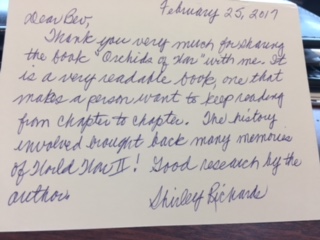 February 25, 2017
Dear Bev,
Thank you very much for sharing
the book "Orchids of War" with me. It
is a very readable book, one that
makes a person want to keep reading
from chapter to chapter. The history
involved brought back many memories
of World War II! Good research by the
author.
Shirley Richards